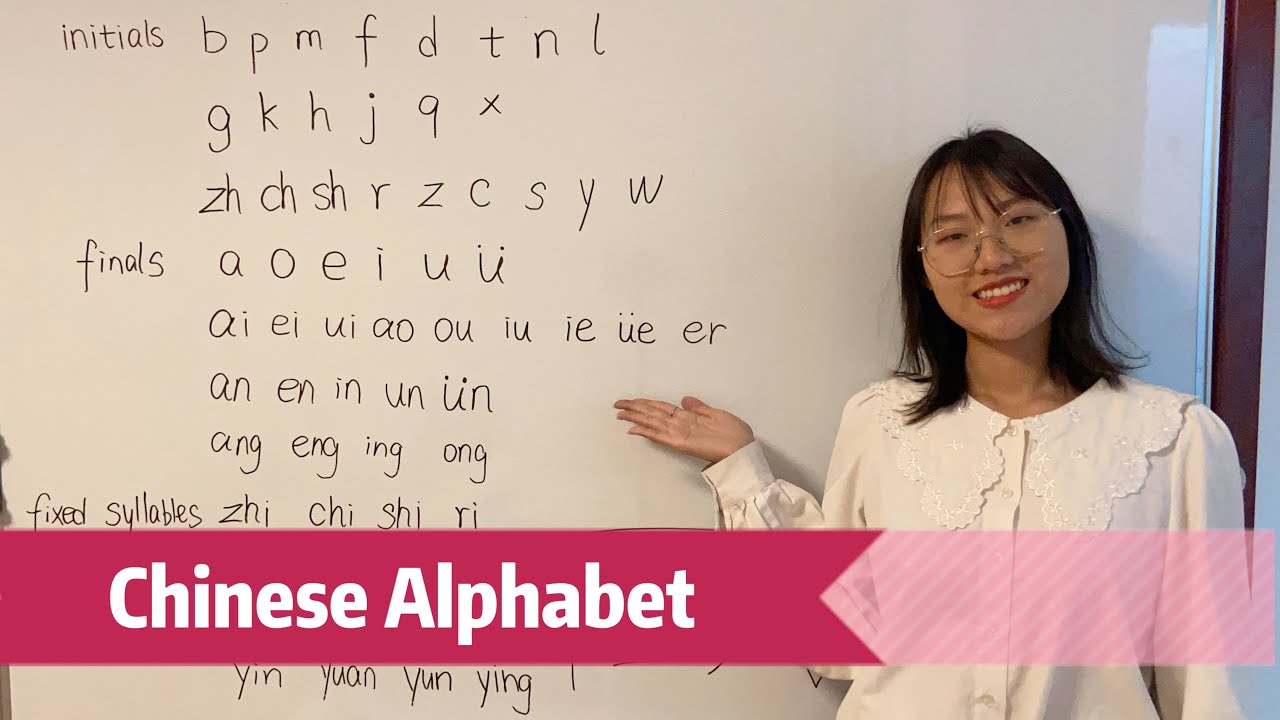 initials b p m f d t n l
g k h j q x
zh ch sh r z c s y w
finals a o e i u ü
ai ei ui ao ou iu ie üe er
an en in un ün
ang eng ing ong
fixed syllables zhi chi shi ri
Chinese Alphabet
yin yuan yun ying